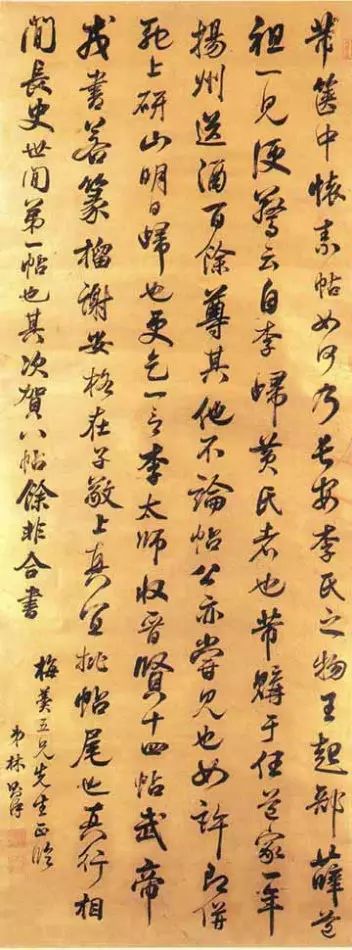 芾篋中懷素帖如何乃長安李氏之物王起部薛道
祖一見便驚云自李歸黃氏者也芾購于任道家一年
揚州送酒百餘尊其他不論帖公亦嘗見也如許即併
馳上研山明日歸也更乞一言李太師收晉賢十四帖武帝
戎書若篆籀謝安格在子敬上真宜批帖尾也真行相
間長史世間第一帖也其次賀八帖餘非合書
梅羹五兄先生正臨
弟林則徐